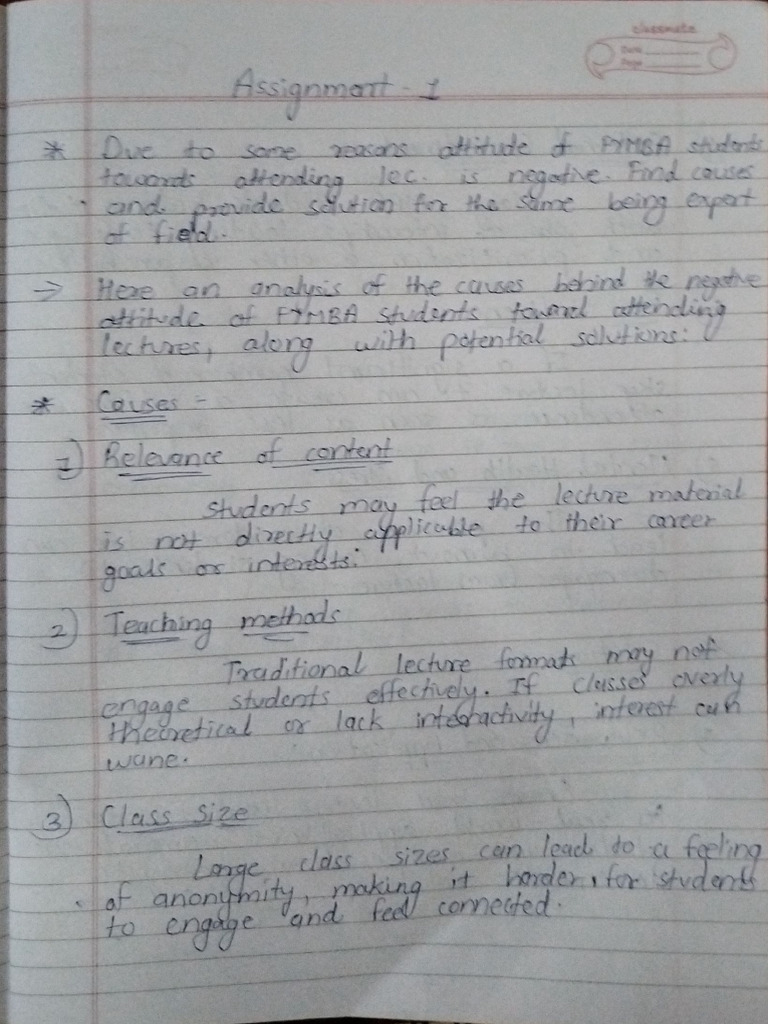 classmate
Date
Page
Assignment - 1
* Due to some reasons attitude of FYMBA students
towards attending lec. is negative. Find causes
and provide solution for the same being expert
of field.
→ Here an analysis of the causes behind the negative
attitude of FYMBA students toward attending
lectures, along with potential solutions:
* Causes -
1) Relevance of content
Students may feel the lecture material
is not directly applicable to their career
goals or interests.
2) Teaching methods
Traditional lecture formats may not
engage students effectively. If classes overly
theoretical or lack interactivity, interest can
wane.
3) Class size
Large class sizes can lead to a feeling
of anonymity, making it harder, for students
to engage and feel connected.